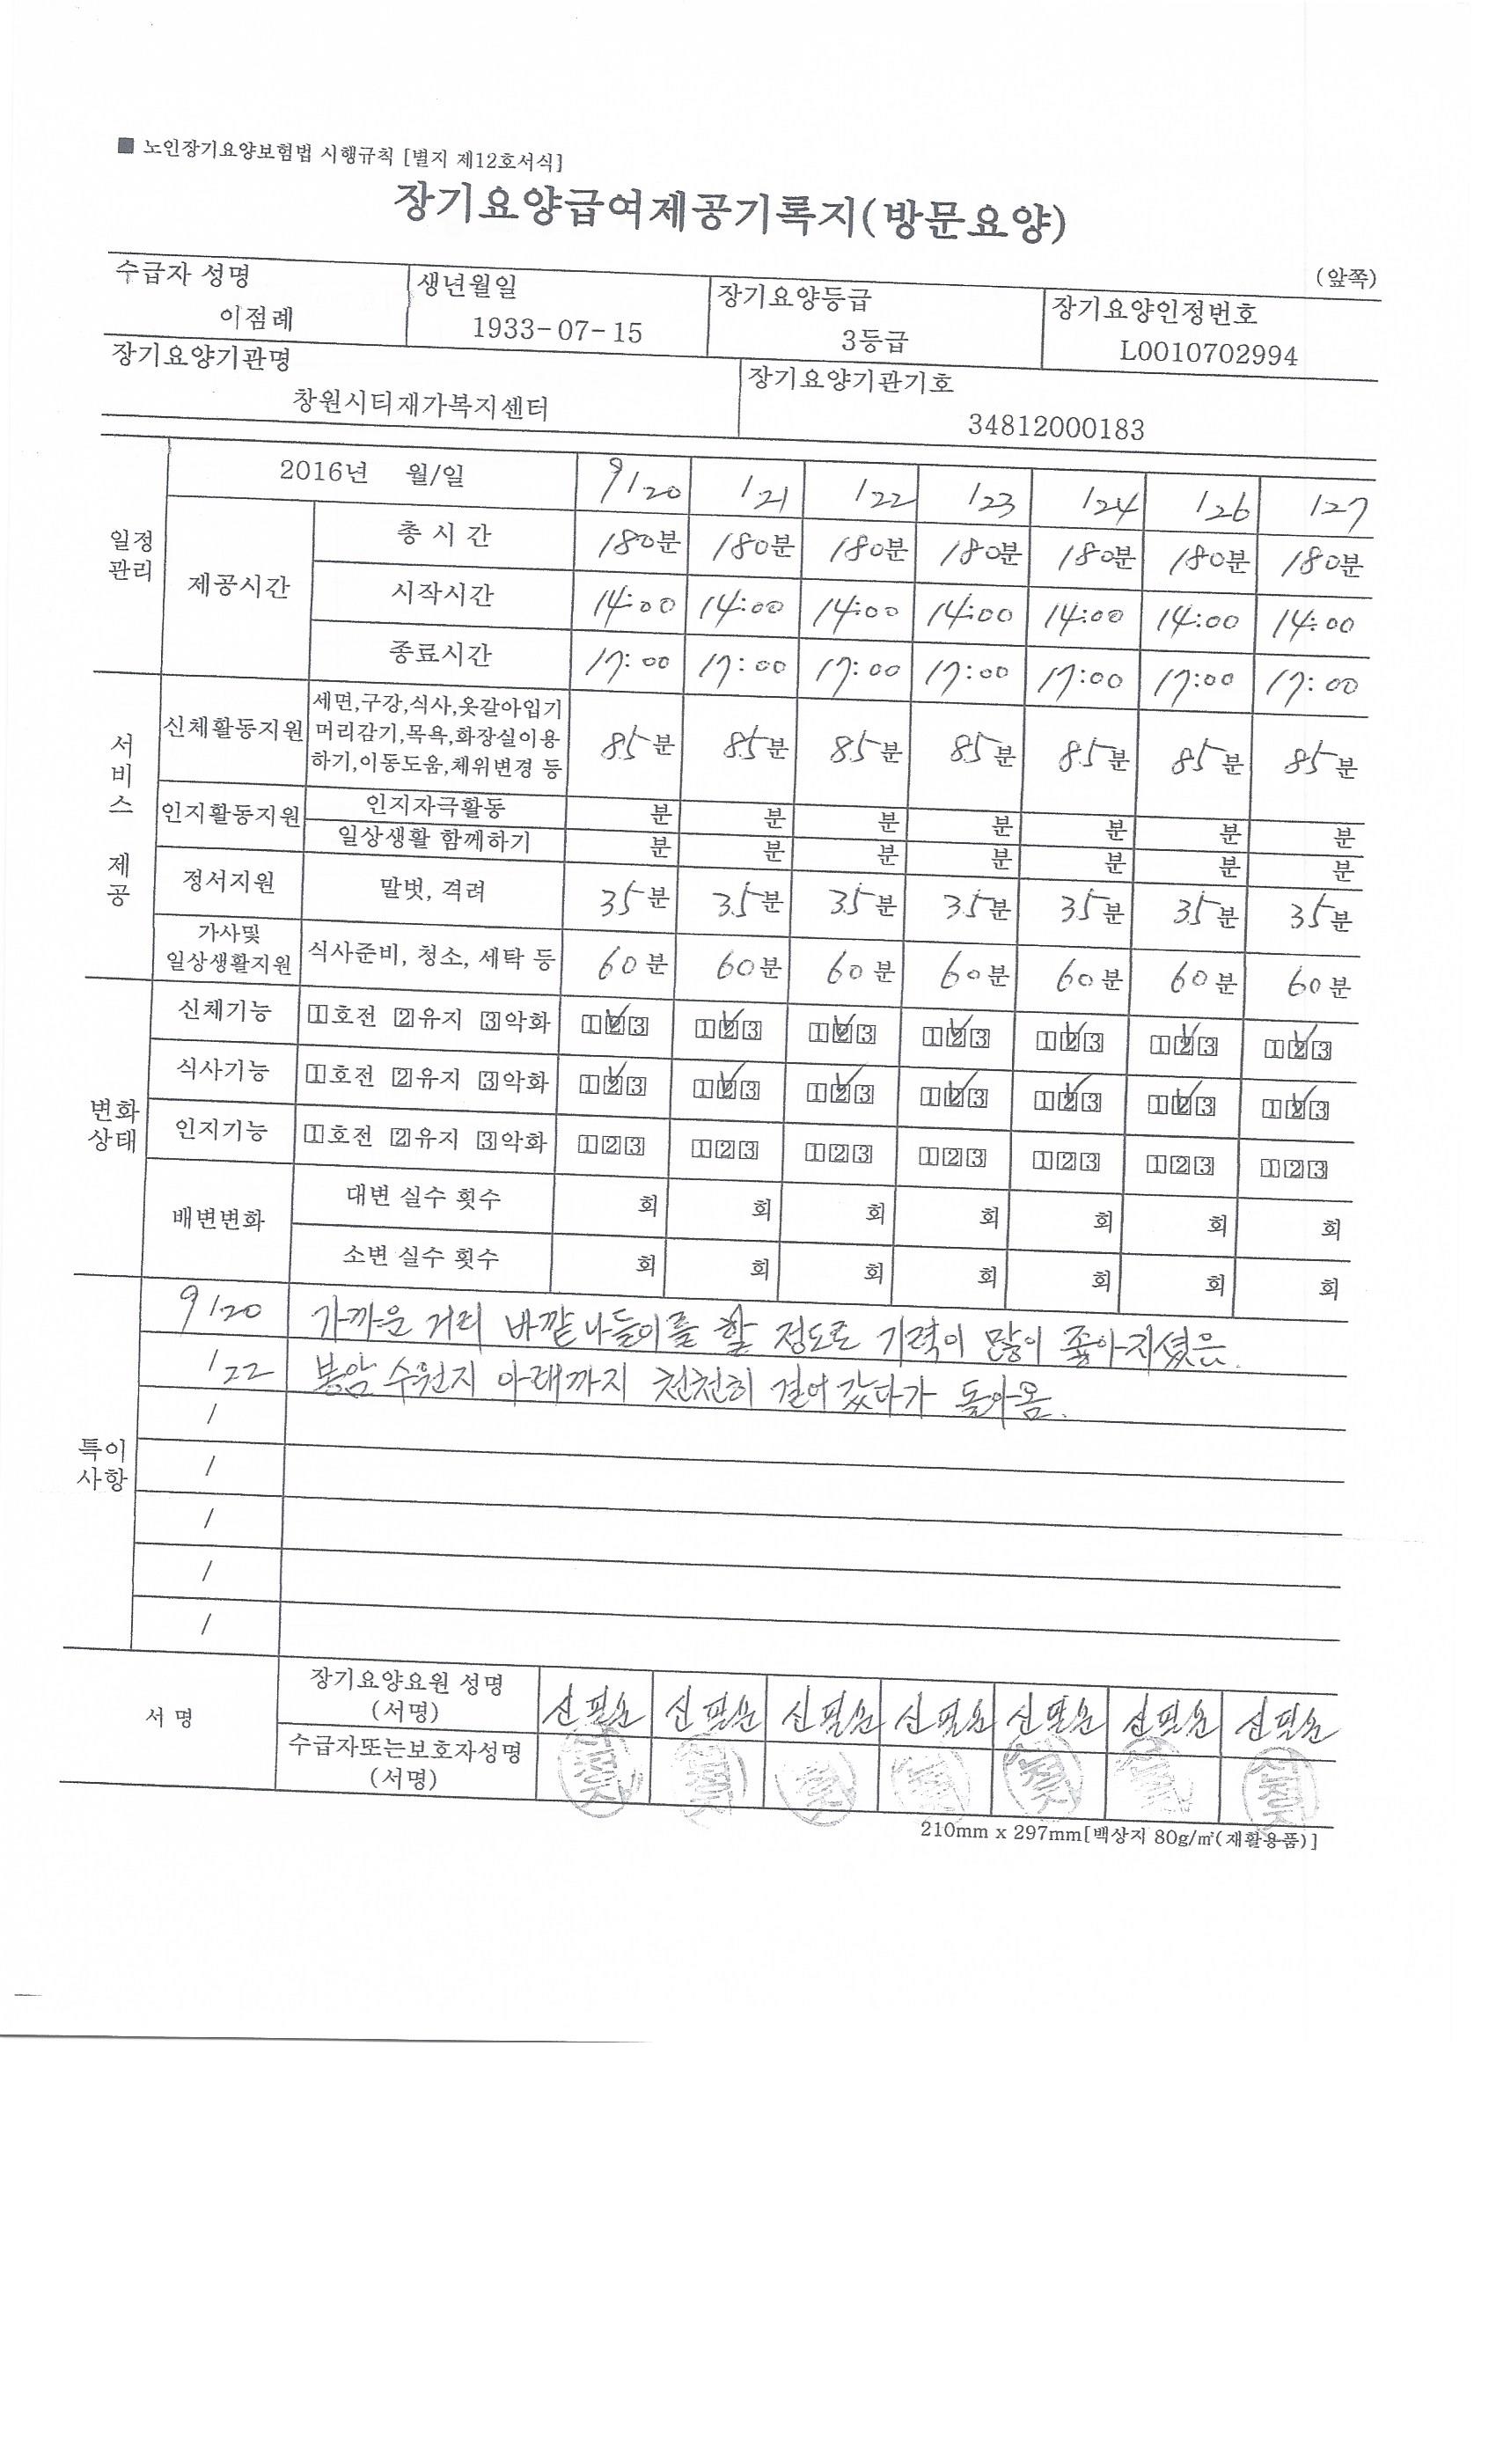 ■ 노인장기요양보험법 시행규칙 [별지 제12호서식]
장기요양급여제공기록지(방문요양)
(앞쪽)
수급자 성명 생년월일 장기요양등급 장기요양인정번호
이점례 1933-07-15 3등급 L0010702994
장기요양기관명 장기요양기관기호
창원시티재가복지센터 34812000183
일정관리
2016년 월/일 9/20 /21 /22 /23 /24 /26 /27
제공시간
총 시 간 180분 180분 180분 180분 180분 180분 180분
시작시간 14:00 14:00 14:00 14:00 14:00 14:00 14:00
종료시간 17:00 17:00 17:00 17:00 17:00 17:00 17:00
서비스 제공
신체활동지원
세면,구강,식사,옷갈아입기
머리감기,목욕,화장실이용
하기,이동도움,체위변경 등
85분 85분 85분 85분 85분 85분 85분
인지활동지원
인지자극활동 분 분 분 분 분 분 분
일상생활 함께하기 분 분 분 분 분 분 분
정서지원 말벗, 격려 35분 35분 35분 35분 35분 35분 35분
가사및
일상생활지원 식사준비, 청소, 세탁 등 60분 60분 60분 60분 60분 60분 60분
변화상태
신체기능 1호전 2유지 3악화 123 123 123 123 123 123 123
식사기능 1호전 2유지 3악화 123 123 123 123 123 123 123
인지기능 1호전 2유지 3악화 123 123 123 123 123 123 123
배변변화
대변 실수 횟수 회 회 회 회 회 회 회
소변 실수 횟수 회 회 회 회 회 회 회
특이사항
9/20 가까운 거리 바깥나들이를 할 정도로 기력이 많이 좋아지셨음.
/22 봉암 수원지 아래까지 천천히 걸어갔다가 돌아옴.
/
/
/
/
/
서 명
장기요양요원 성명
(서명)
수급자또는보호자성명
(서명)
210mm x 297mm[백상지 80g/㎡(재활용품)]